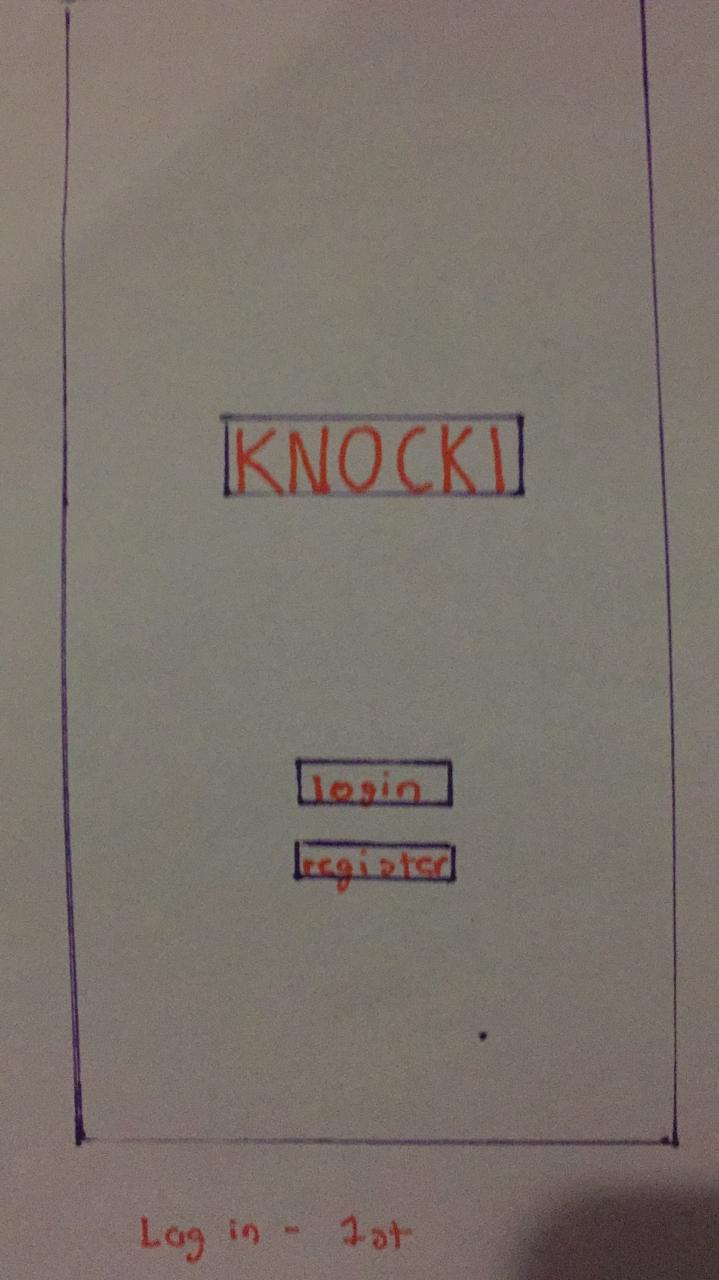 KNOCKI
login
register
Log in - 1st